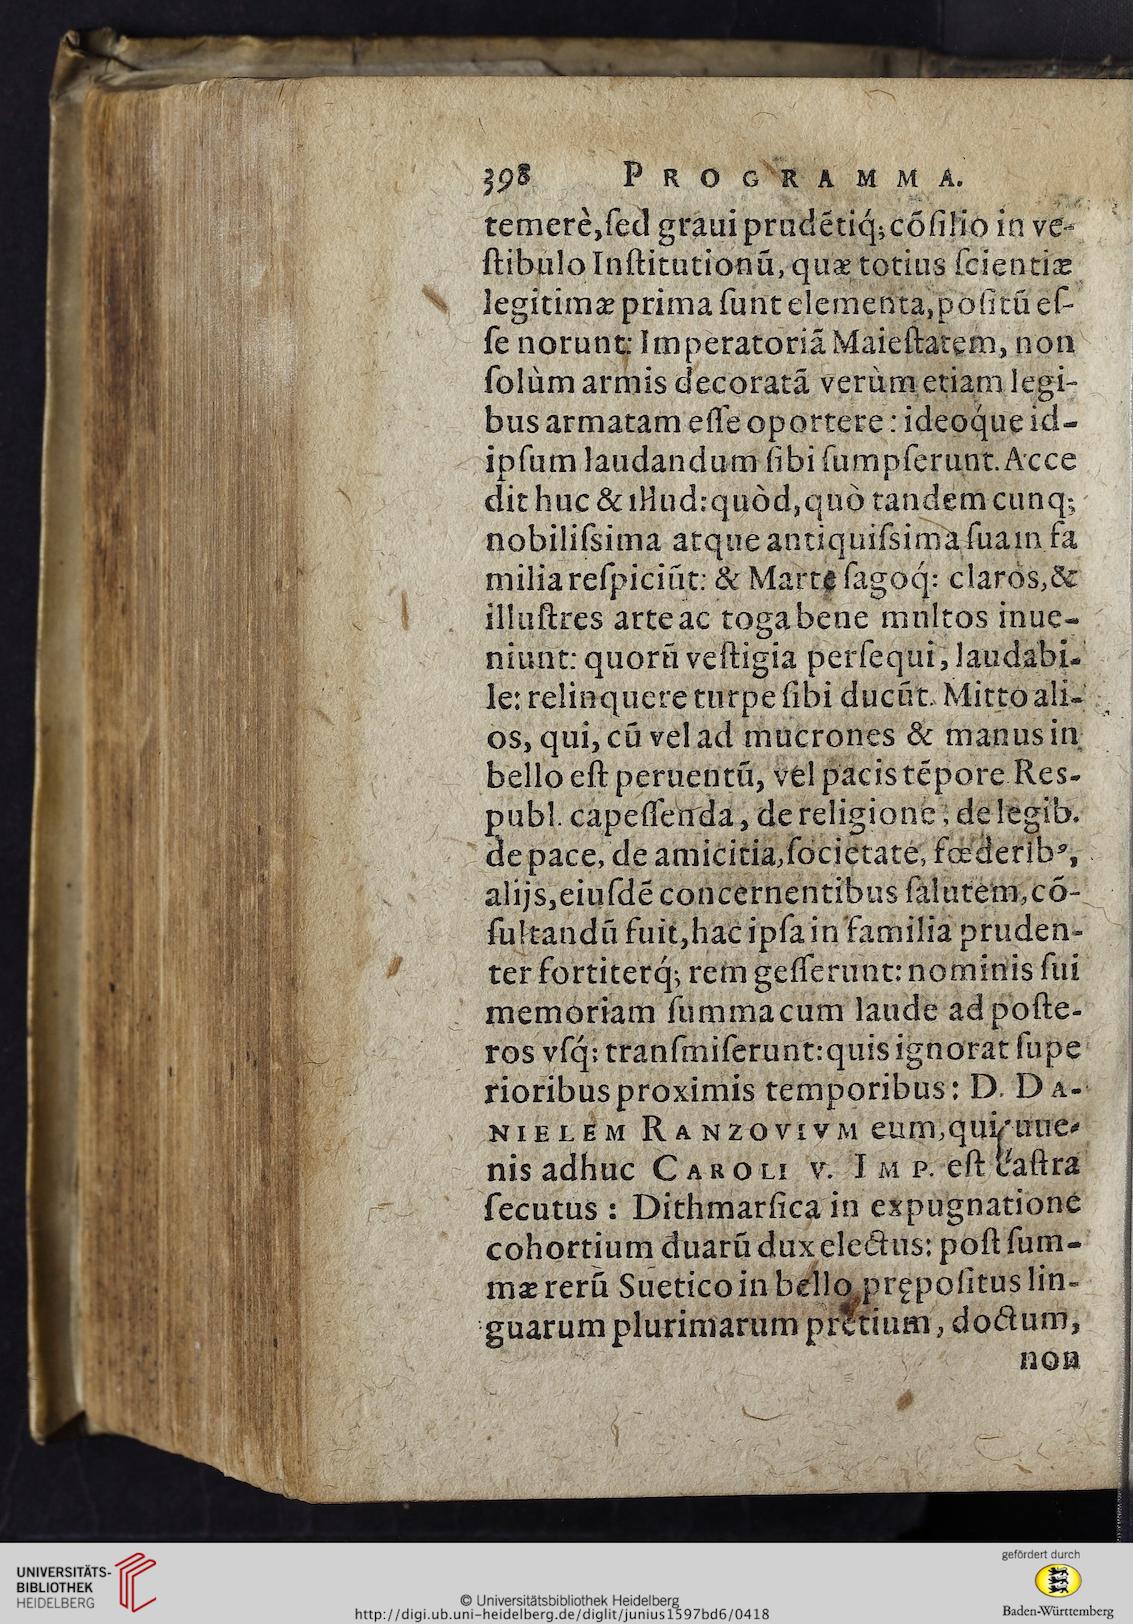 398 PROGRAMMA.
temerè,ſed graui prudẽtiq́; cõſilio in ve-
ſtibulo Inſtitutionũ, quæ totius ſcientiæ
legitimæ prima ſunt elementa, poſitũ eſ-
ſe norunt: Imperatoriã Maieſtatem, non
ſolùm armis decoratã verùm etiam legi-
bus armatam eſſe oportere: ideoq́ue id-
ipſum laudandum ſibi ſumpſerunt. Acce
dit huc & illud: quòd, quò tandem cunq;
nobiliſsima atque antiquiſsima ſua in fa
milia reſpiciũt: & Marte ſagoq́: claros, &
illuſtres arte ac toga bene multos inue-
niunt: quorũ veſtigia perſequi, laudabi-
le: relinquere turpe ſibi ducũt. Mitto ali-
os, qui, cũ vel ad mucrones & manus in
bello eſt peruentũ, vel pacis tẽpore Res-
publ. capeſſenda, de religione, de legib.
de pace, de amicitia, ſocietate, fœderibꝰ,
alijs, eiuſdẽ concernentibus ſalutem, cõ-
ſultandũ fuit, hac ipſa in familia pruden-
ter fortiterq́; rem geſſerunt: nominis ſui
memoriam ſumma cum laude ad poſte-
ros vſq́; tranſmiſerunt: quis ignorat ſupe
rioribus proximis temporibus: D. DA-
NIELEM RANZOVIVM eum, qui iuue-
nis adhuc CAROLI V. IMP. eſt caſtra
ſecutus: Dithmarſica in expugnatione
cohortium duarũ dux electus: poſt ſum-
mæ rerũ Suetico in bello prępoſitus lin-
guarum plurimarum pretium, doctum,
non
UNIVERSITÄTS-
BIBLIOTHEK
HEIDELBERG
© Universitätsbibliothek Heidelberg
http://digi.ub.uni-heidelberg.de/diglit/junius1597bd6/0418
gefördert durch
Baden-Württemberg